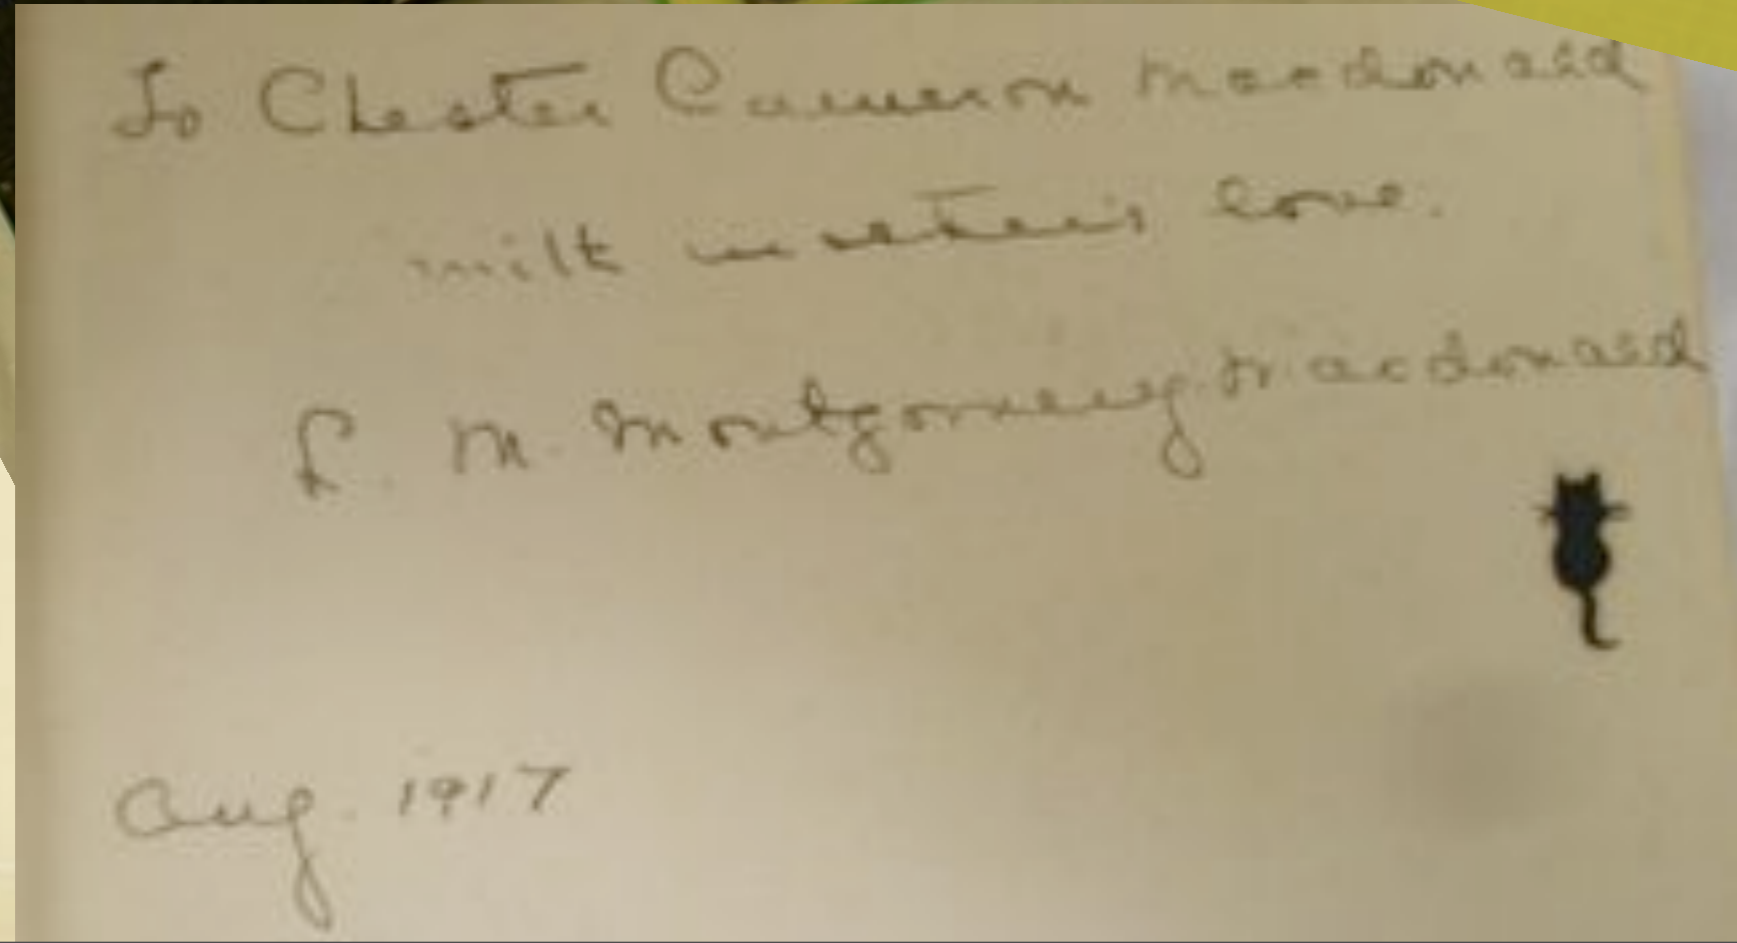 To Chester Cameron Macdonald
with mother's love.
L. M. Montgomery Macdonald
Aug. 1917